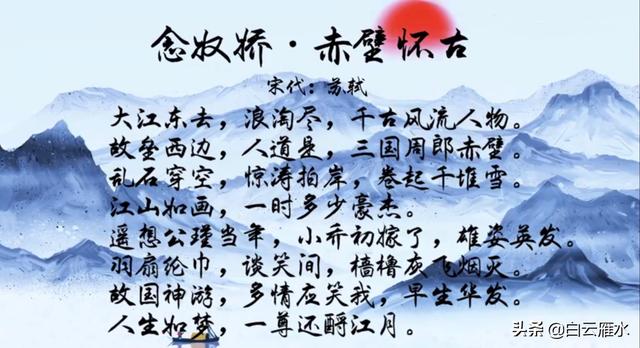 念奴娇·赤壁怀古
宋代：苏轼
大江东去，浪淘尽，千古风流人物。
故垒西边，人道是，三国周郎赤壁。
乱石穿空，惊涛拍岸，卷起千堆雪。
江山如画，一时多少豪杰。
遥想公瑾当年，小乔初嫁了，雄姿英发。
羽扇纶巾，谈笑间，樯橹灰飞烟灭。
故国神游，多情应笑我，早生华发。
人生如梦，一尊还酹江月。
头条 @白云雁水